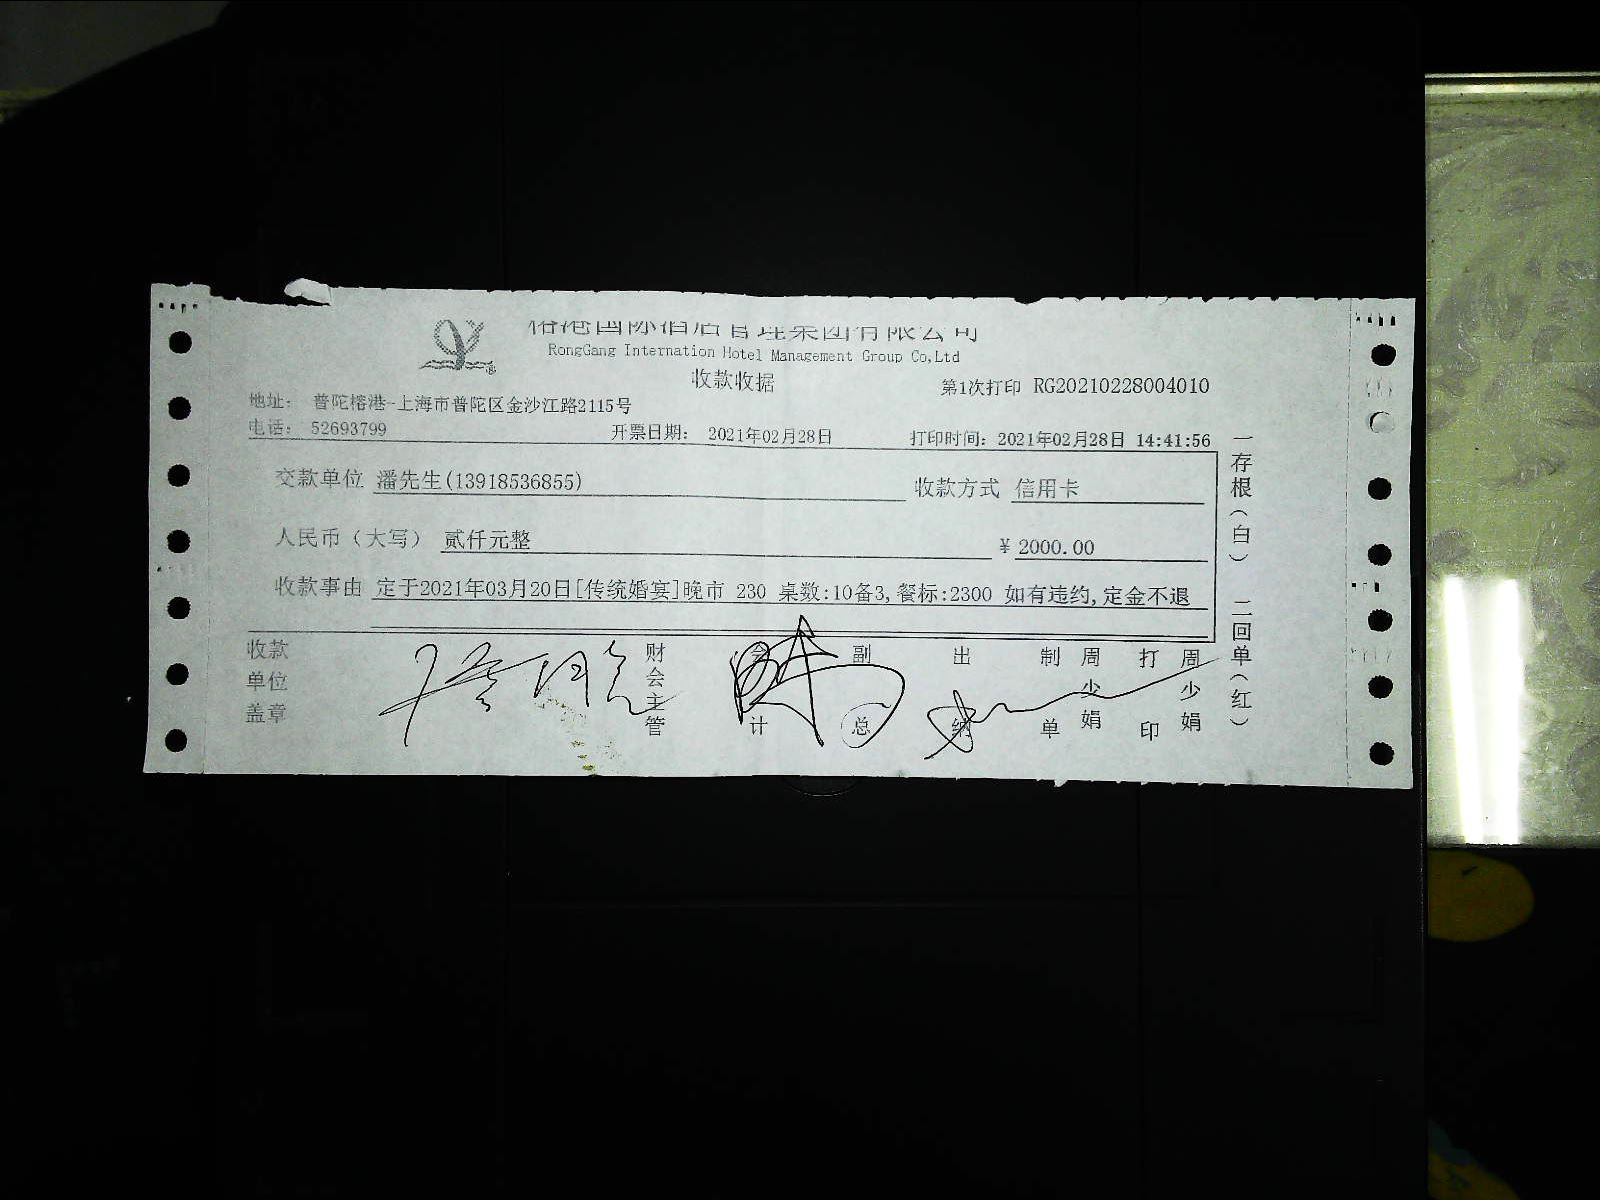 榕港国际酒店管理集团有限公司
RongGang Internation Hotel Management Group Co,Ltd
收款收据
第1次打印 RG20210228004010
地址： 普陀榕港-上海市普陀区金沙江路2115号
电话： 52693799 开票日期： 2021年02月28日 打印时间：2021年02月28日 14:41:56
交款单位 潘先生(13918536855) 收款方式 信用卡
人民币（大写） 贰仟元整 ¥ 2000.00
收款事由 定于2021年03月20日[传统婚宴]晚市 230 桌数:10备3,餐标:2300 如有违约,定金不退
收款单位盖章 财会主管 会计 副总 出纳 制单 周少娟 打印 周少娟
一存根（白） 二回单（红）